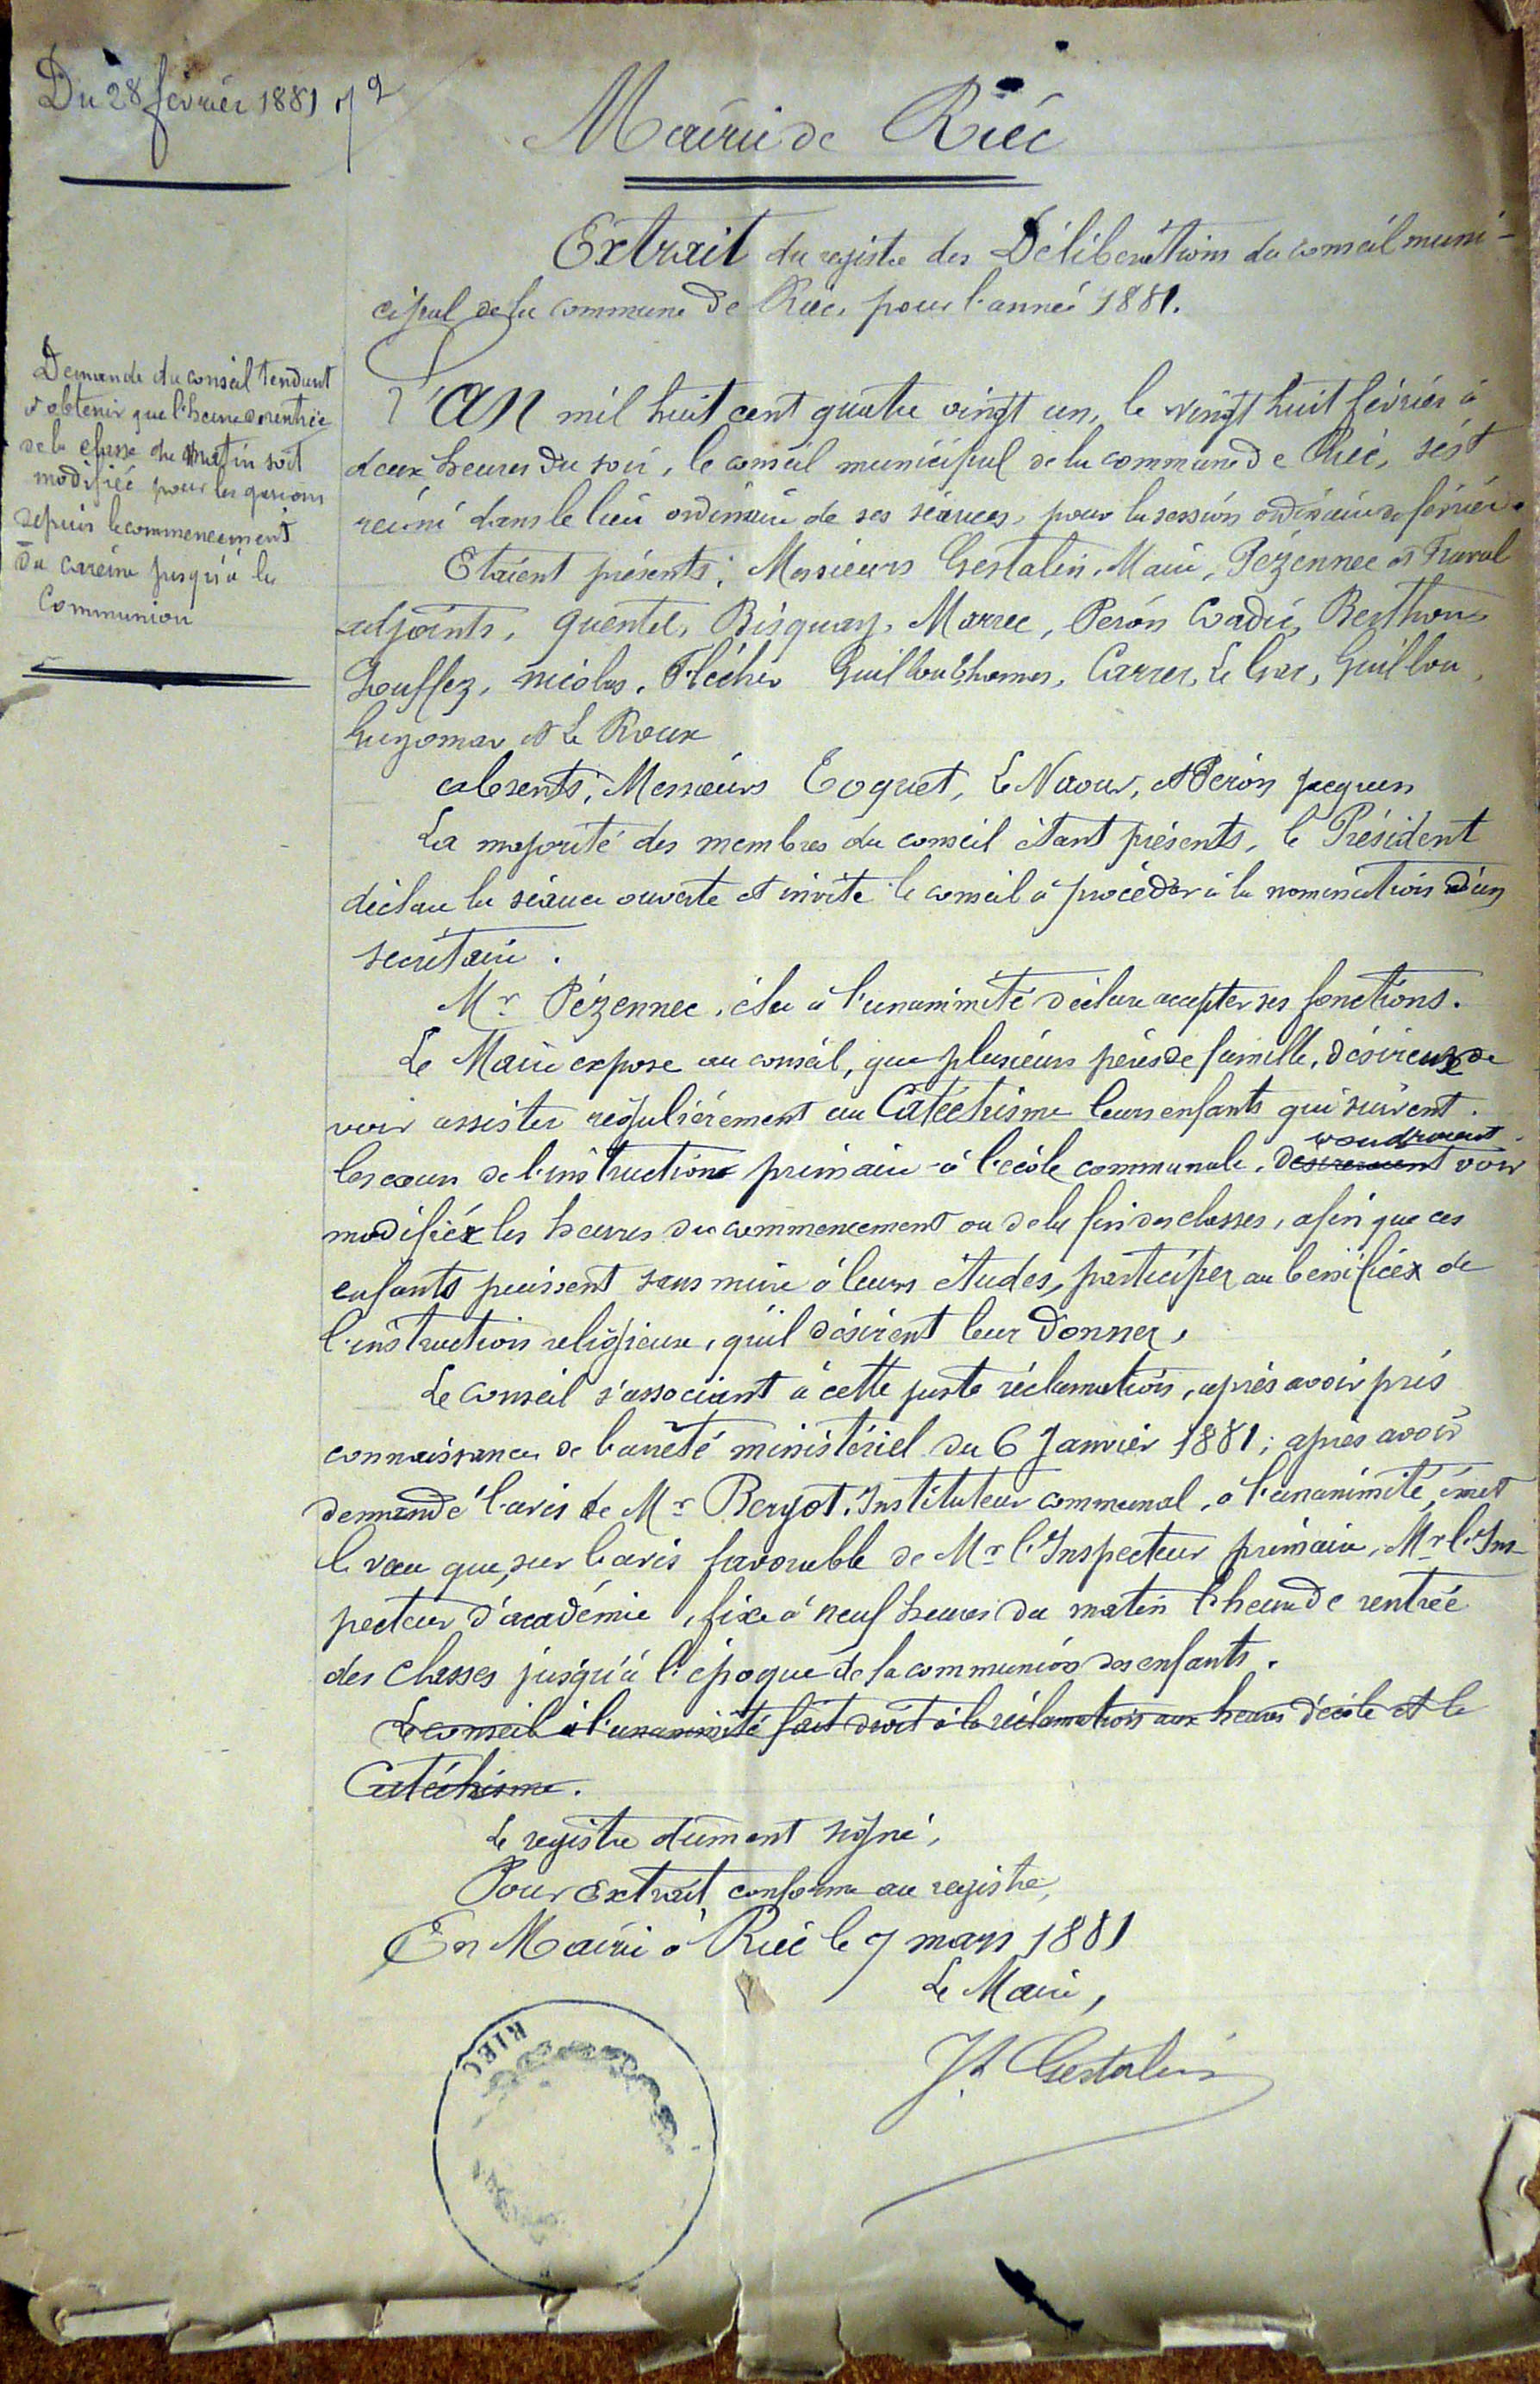 Du 28 février 1881
Mairie de Riec
Extrait du registre des Délibérations du conseil muni-
cipal de la commune de Riec, pour l'année 1881.
Demande du conseil tendant
à obtenir que l'heure de rentrée
de la classe du matin soit
modifiée pour les garçons
depuis le commencement
du carême jusqu'à la
Communion
L'an mil huit cent quatre vingt un, le vingt huit février à
deux heures du soir, le conseil municipal de la commune de Riec, s'est
réuni dans le lieu ordinaire de ses séances, pour la session ordinaire de février.
Etaient présents: Messieurs Gestalin, Maire, Pézennec et Fraval
adjoints, Quentel, Bisquay, Marrec, Peron Cadic, Berthou
Souffez, Nicolas, Flécher Guillou Thomas, Carrer, Le Gac, Guillou,
Guyomar et Le Roux
absents, Messieurs Coquet, Le Naour, et Péron jacques
La majorité des membres du conseil étant présents, le Président
déclare la séance ouverte et invite le conseil à procéder à la nomination d'un
secrétaire.
Mr Pézennec, élu à l'unanimité déclare accepter ses fonctions.
Le Maire expose au conseil, que plusieurs pères de famille, désireux de
voir assister régulièrement au Catéchisme leurs enfants qui suivent
les cours de l'instruction primaire à l'école communale, desireraient voudraient voir
modifiéx les heures du commencement ou de la fin des classes, afin que ces
enfants puissent sans nuire à leurs études, participer au bénéficéx de
l'instruction religieuse, qu'il désirent leur donner,
Le conseil s'associant à cette juste réclamation, après avoir pris
connaissance de l'arrêté ministériel du 6 Janvier 1881; après avoir
demandé l'avis de Mr Bergot, Instituteur communal, à l'unanimité, émet
le vœu que, sur l'avis favorable de Mr l'Inspecteur primaire, Mr l'Ins-
pecteur d'académie, fixe à neuf heures du matin l'heure de rentrée
des Classes jusqu'à l'époque de la communion des enfants.
Le conseil à l'unanimité fait droit à la réclamation aux heures d'école et le
Catéchisme.
Le registre dument signé,
Pour Extrait conforme au registre,
En Mairie à Riec le 7 mars 1881
Le Maire,
Gestalin
RIEC